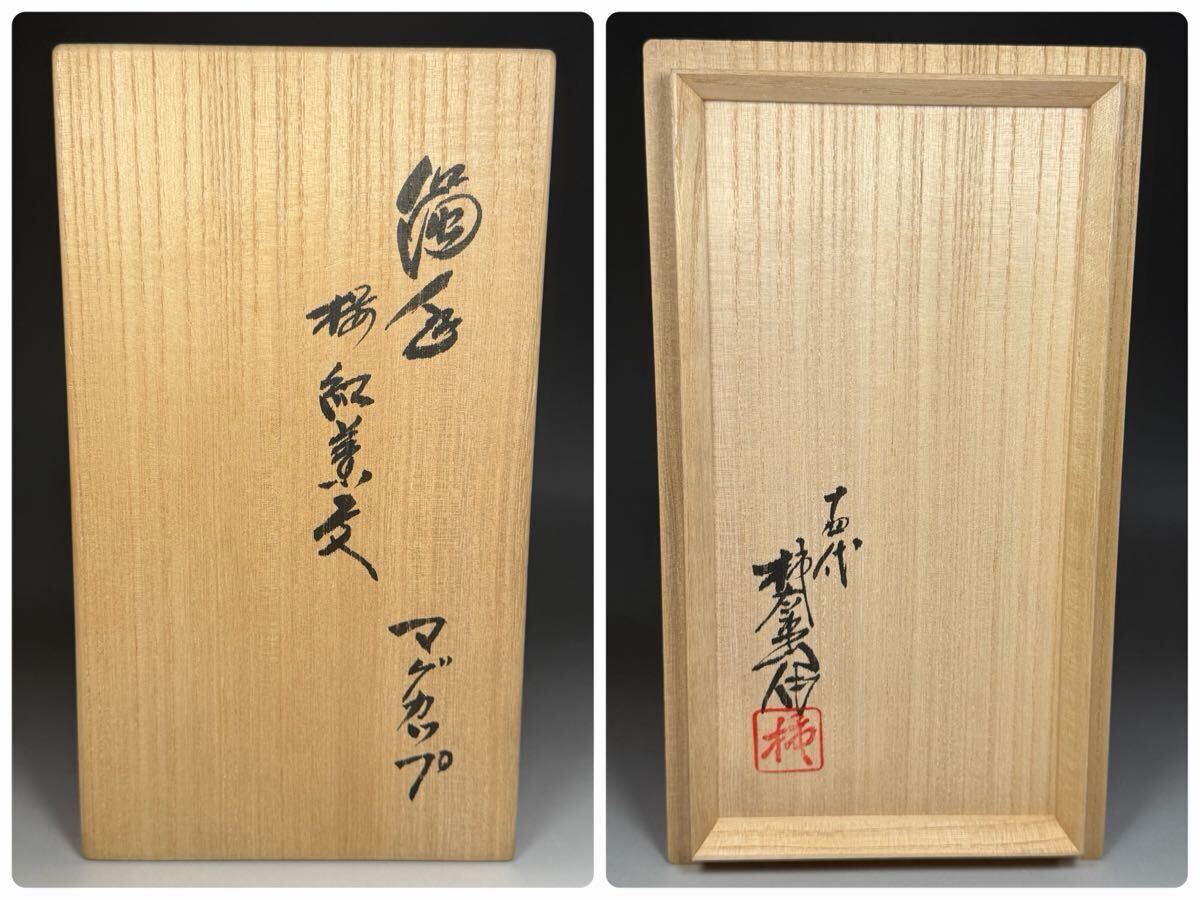 濁手
桜紅葉文
マグカップ
十四代
柿右衛門
柿